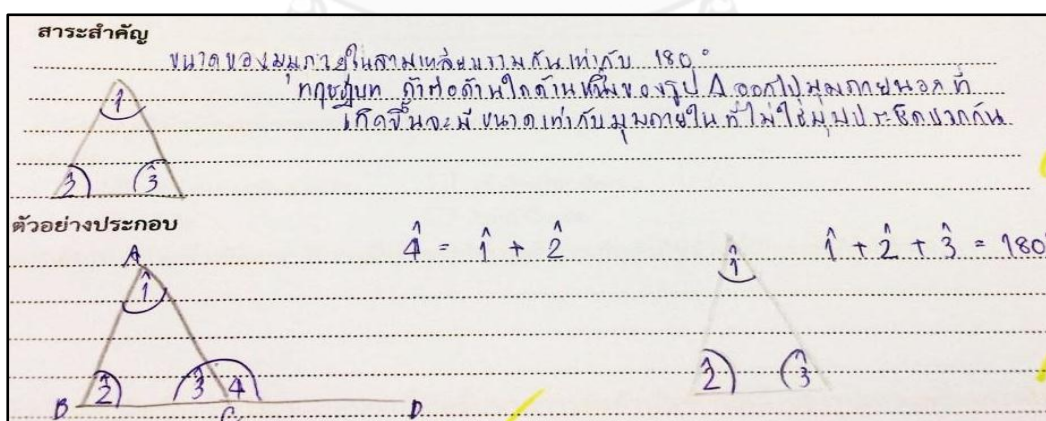 สาระสำคัญ
ขนาดของมุมภายในสามเหลี่ยมรวมกันเท่ากับ 180°
ทฤษฎีบท ถ้าต่อด้านใดด้านหนึ่งของรูป Δ ออกไปมุมภายนอกที่
เกิดขึ้นจะมีขนาดเท่ากับมุมภายในที่ไม่ใช่มุมประชิดบวกกัน
1̂
2̂ 3̂
ตัวอย่างประกอบ
4̂ = 1̂ + 2̂
1̂ + 2̂ + 3̂ = 180°
A
1̂
2̂ 3̂ 4̂
B C D
1̂
2̂ 3̂